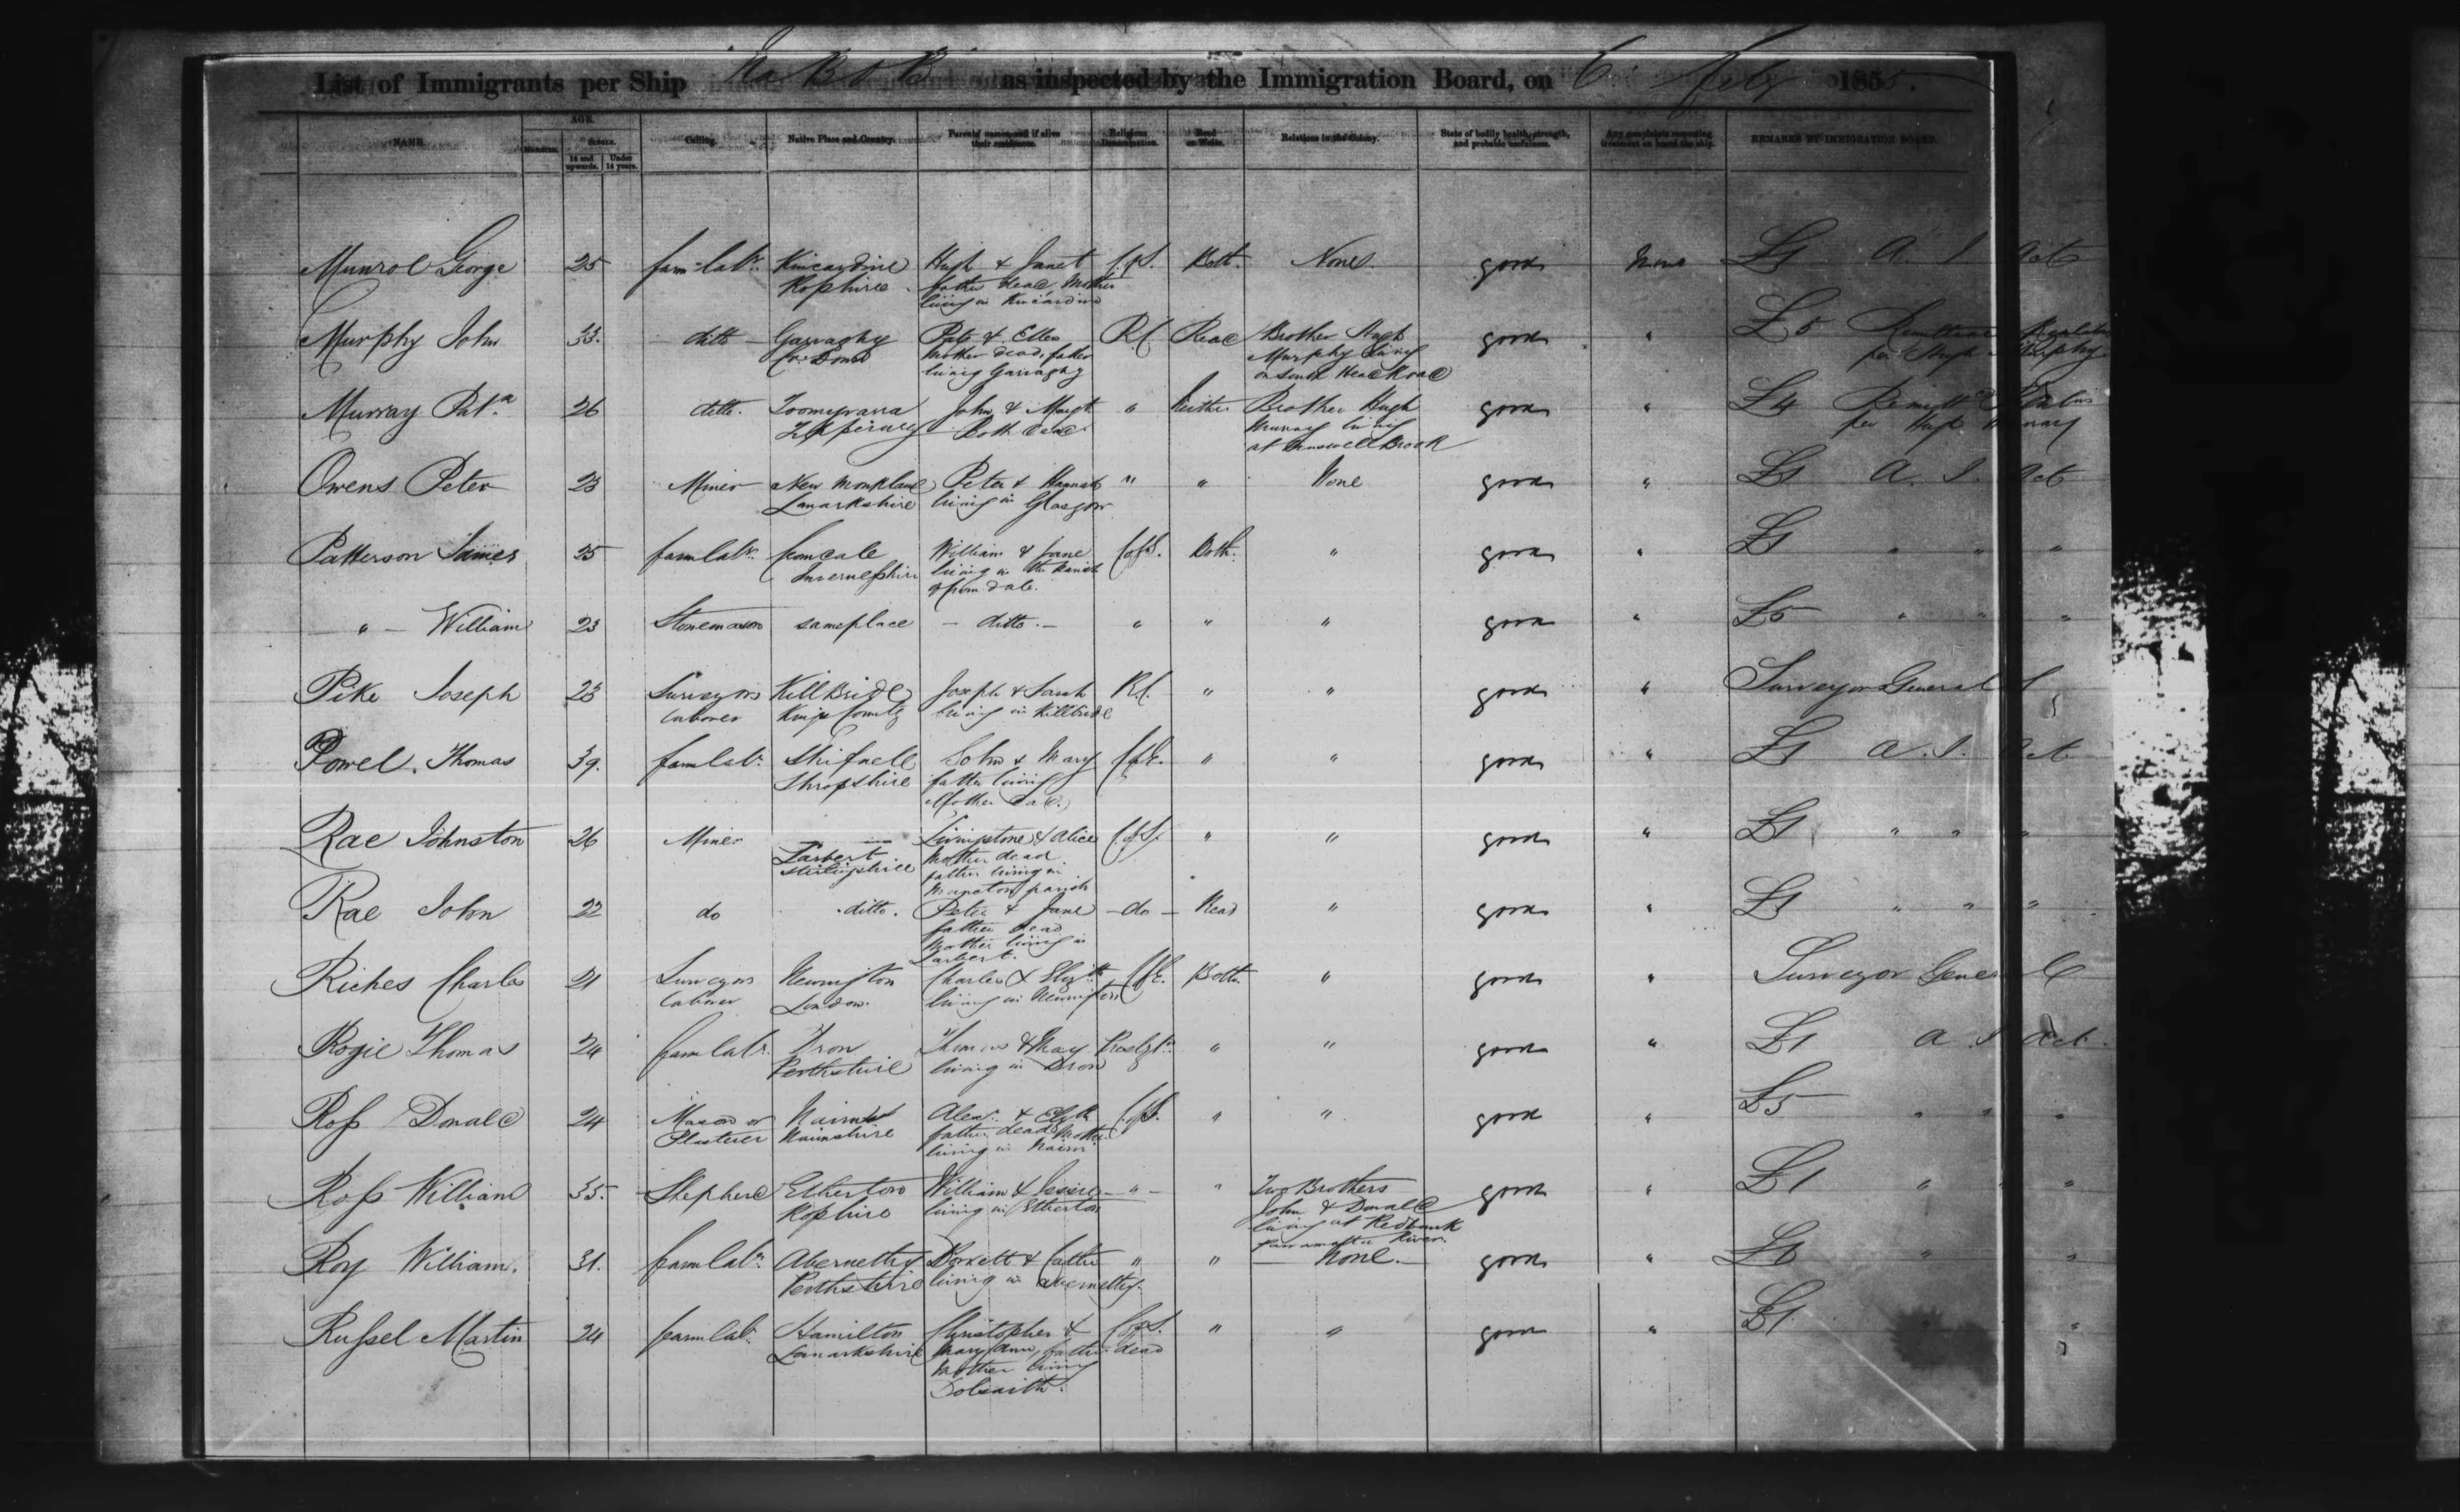 List of Immigrants per Ship as inspected by the Immigration Board, on 6 Feby 1855.
NAME. AGE. Calling. Native Place and Country. Parents' names, and if alive their residences. Religious Denomination. Read or Write. Relations in the Colony. State of bodily health, strength, and probable usefulness. Any complaints respecting treatment on board the ship. REMARKS BY IMMIGRATION BOARD.
14 and upwards. Under 14 years.
Munroe George 25 farm labr. Kincardine Hugh & Janet C of S. Both. None good None £1 A. I Act
Rosshire father dead, Mother
living in Kincardine
Murphy John 33. ditto Garvaghy Patk & Ellen RC Read Brother Hugh good " £5 Remittance Regulations
Co. Down Mother dead, father Murphy living per Hugh Murphy
living Garvaghy on South Head Road
Murray Pat. 26 ditto. John & Margt " Neither Brother Hugh good " £4
Tipperary Both dead Murray living per Hugh Murray
at Muswellbrook
Owens Peter 23 Miner New Monkland Peter & Hannah " " None good " £1 A. I. Act
Lanarkshire living in Glasgow
Patterson James 25 farm labr. Cromdale William & Jane C of S. Both. " good " £1 " " "
Invernesshire living in the Parish
of Cromdale.
" - William 23 Stonemason same place - ditto. - " " " good " £5 " " "
Pike Joseph 23 Surveyors Killbride Joseph & Sarah RC. " " good " Surveyor General
laborer Kings County living in Killbride
Powel. Thomas 39. farm labr. Shifnell John & Mary C of E. " " good " £1 A. I. Act
Shropshire father living
Mother dead.
Rae Johnston 26 Miner Larbert Livingstone & Alice C of S. " " good " £1 " " "
Stirlingshire Mother dead
father living in
parish
Rae John 22 do ditto. Peter & Jane - do - Read " good " £1 " " "
father dead
Mother living in
Larbert.
Riches Charles 21 Surveyors Newington Charles & Elizth C of E. Both. " good " Surveyor General
laborer London. living in Newington
Rogie Thomas 24 farm labr. Dron Thomas & May " " good " £1 A I Act.
Perthshire living in Dron
Ross Donald 24 Mason or Nairn Alexr. & Elizth C of S. " " good " £5 " " "
Plasterer Nairnshire father dead Mother
living in Nairn
Ross William 35. Shepherd Etherton William & Jessie - " - " Two Brothers good " £1 " " "
Rosshire living in Etherton John & Donald
living at Redbank
Parramatta River.
Roy William. 31. farm labr. Abernethy & Cathe " " - None. - good " " "
Perthshire living in Abernethy.
Russel Martin 24 farm labr Hamilton Christopher & C of S. " " good " £1 " "
Lanarkshire Mary Ann, father dead
Mother living